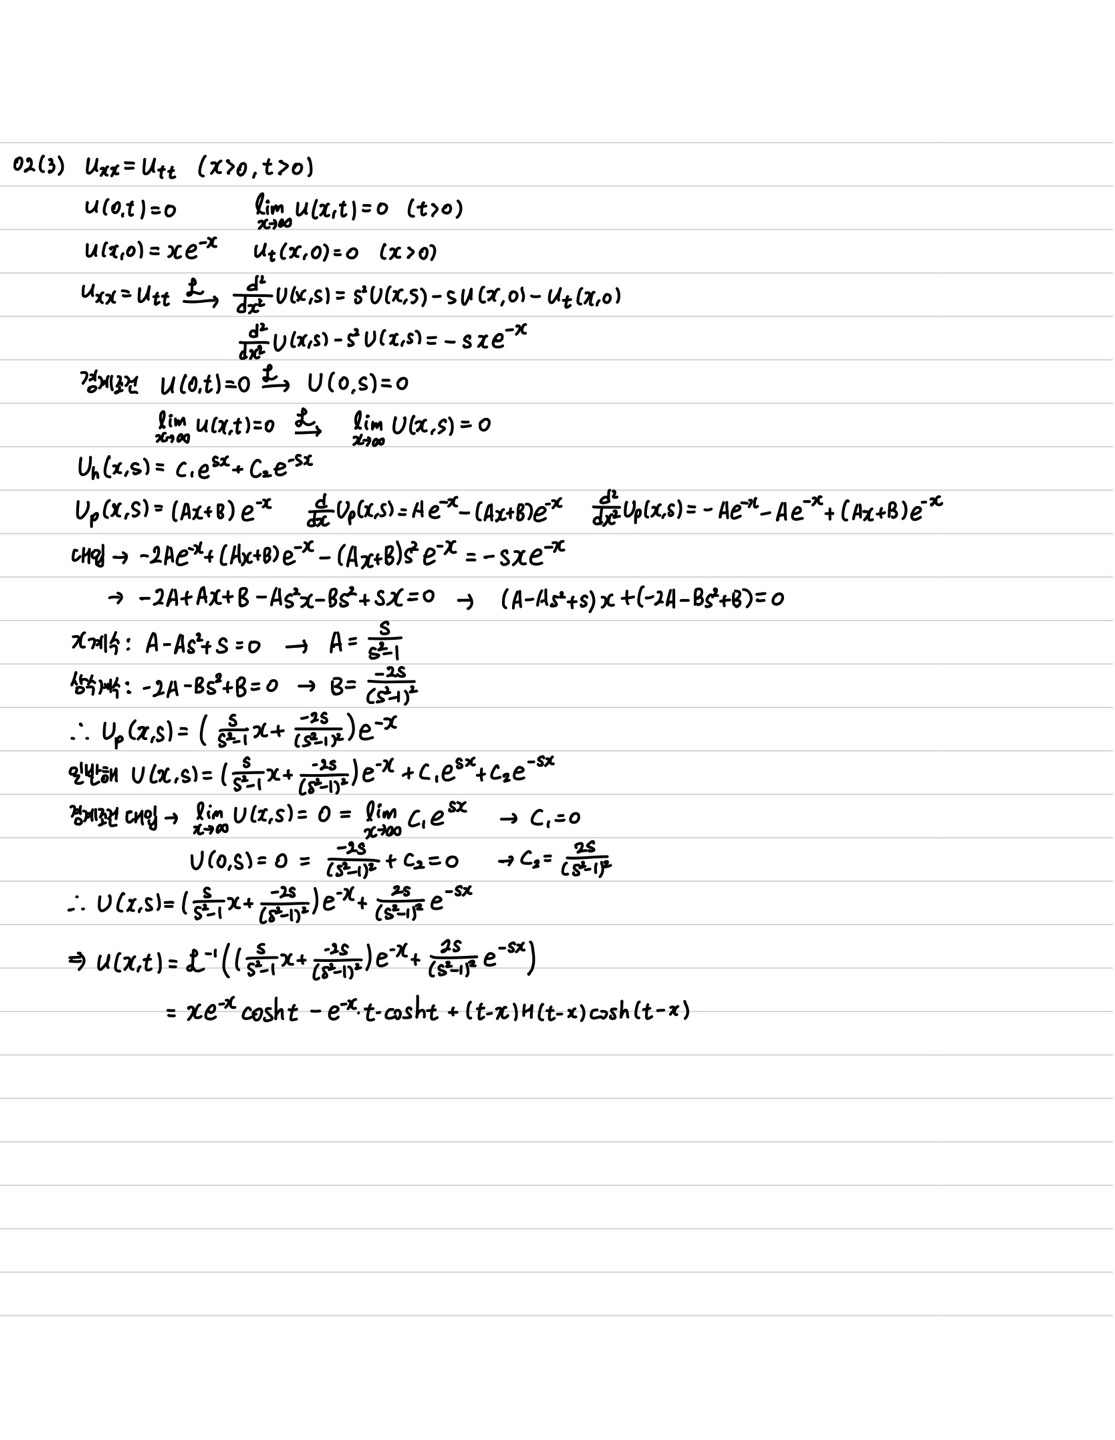 02(3) u_xx = u_tt (x>0, t>0)
u(0,t)=0 lim_{x→∞} u(x,t)=0 (t>0)
u(x,0) = xe^{-x} u_t(x,0)=0 (x>0)
u_xx = u_tt ℒ→ d²/dx² U(x,s) = s²U(x,s) - su(x,0) - u_t(x,0)
d²/dx² U(x,s) - s²U(x,s) = -sxe^{-x}
경계조건 u(0,t)=0 ℒ→ U(0,s)=0
lim_{x→∞} u(x,t)=0 ℒ→ lim_{x→∞} U(x,s)=0
U_h(x,s) = c₁e^{sx} + c₂e^{-sx}
U_p(x,s) = (Ax+B)e^{-x} d/dx U_p(x,s) = Ae^{-x} - (Ax+B)e^{-x} d²/dx² U_p(x,s) = -Ae^{-x} - Ae^{-x} + (Ax+B)e^{-x}
대입 → -2Ae^{-x} + (Ax+B)e^{-x} - (Ax+B)s²e^{-x} = -sxe^{-x}
→ -2A+Ax+B-As²x-Bs²+sx=0 → (A-As²+s)x+(-2A-Bs²+B)=0
x계수: A-As²+s=0 → A = s/(s²-1)
상수계수: -2A-Bs²+B=0 → B = -2s/(s²-1)²
∴ U_p(x,s) = (s/(s²-1) x + -2s/(s²-1)²)e^{-x}
일반해 U(x,s) = (s/(s²-1) x + -2s/(s²-1)²)e^{-x} + c₁e^{sx} + c₂e^{-sx}
경계조건 대입 → lim_{x→∞} U(x,s) = 0 = lim_{x→∞} c₁e^{sx} → c₁=0
U(0,s) = 0 = -2s/(s²-1)² + c₂ = 0 → c₂ = 2s/(s²-1)²
∴ U(x,s) = (s/(s²-1) x + -2s/(s²-1)²)e^{-x} + 2s/(s²-1)² e^{-sx}
⇒ u(x,t) = ℒ⁻¹((s/(s²-1) x + -2s/(s²-1)²)e^{-x} + 2s/(s²-1)² e^{-sx})
= xe^{-x} cosht - e^{-x}·t·cosht + (t-x)H(t-x)cosh(t-x)